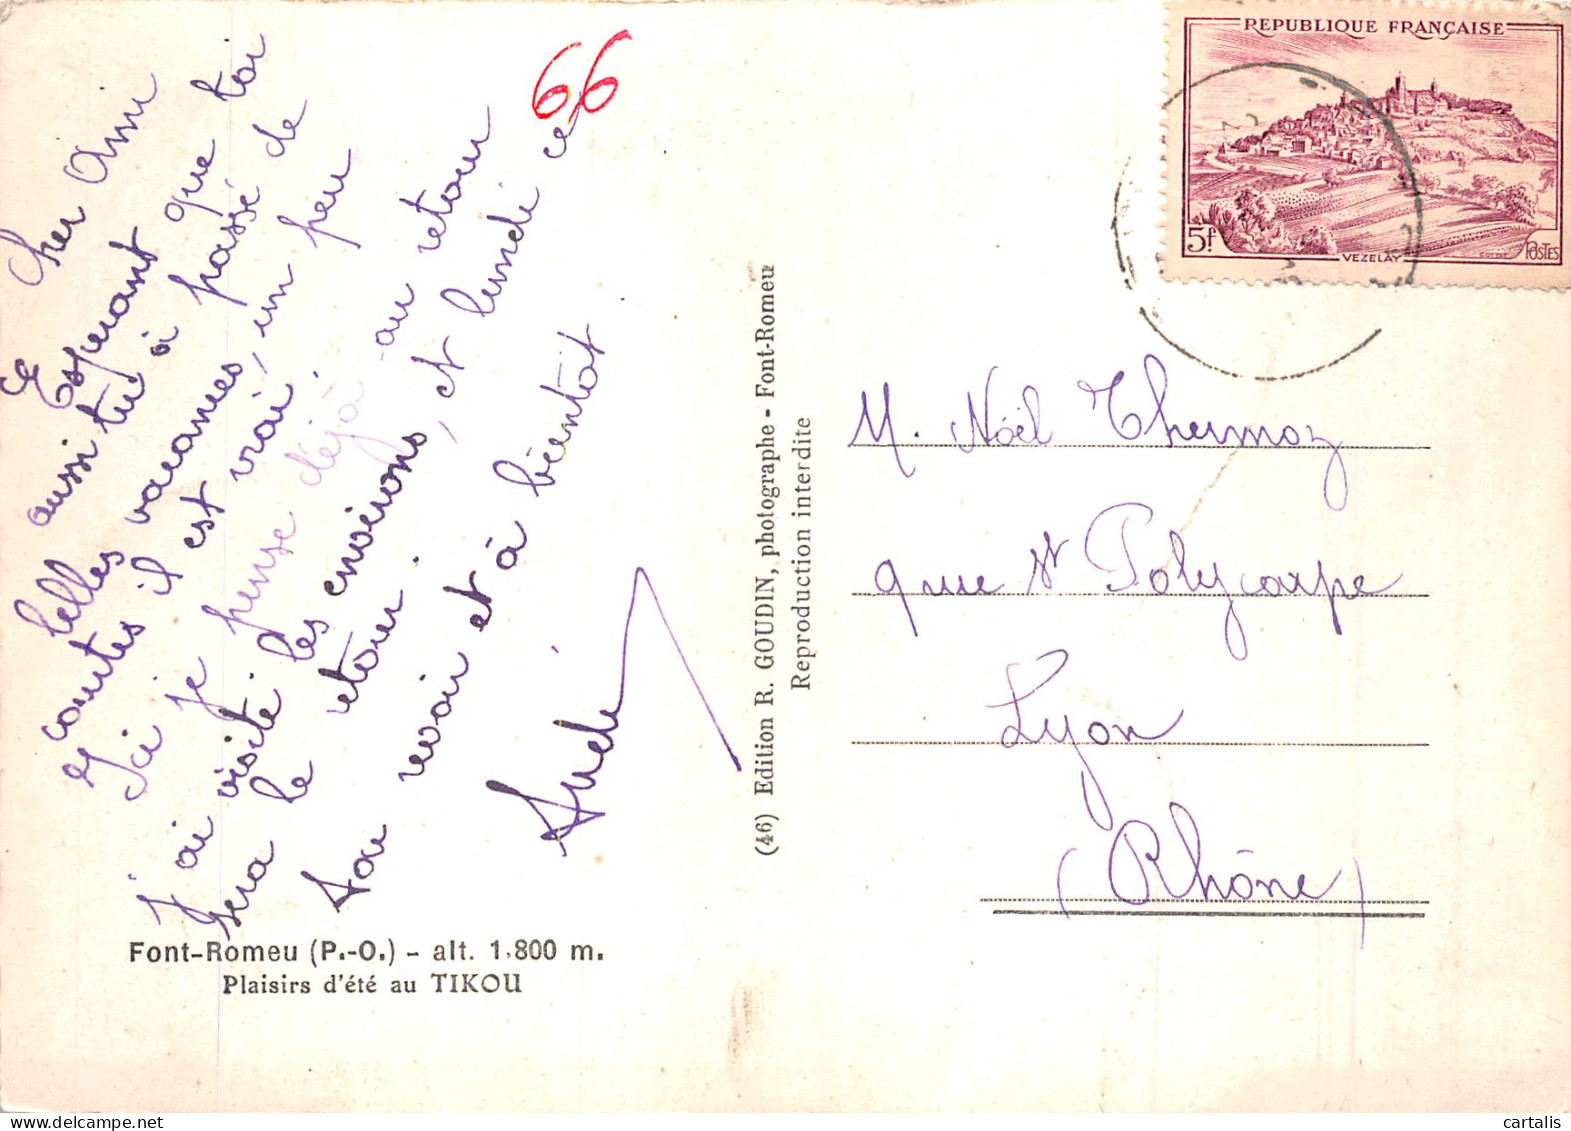 66
Cher Ami
Esperant que toi
aussi tu à passé de
belles vacances, un peu
courtes il est vrai.
Ici je pense déjà au retour
J'ai visité les environs, et lundi ce
sera le retour.
Au revoir et à bientot.
André
Font-Romeu (P.-O.) - alt. 1.800 m.
Plaisirs d'été au TIKOU
(46) Edition R. GOUDIN, photographe - Font-Romeu
Reproduction interdite
REPUBLIQUE FRANÇAISE
5f
VEZELAY
POSTES
M. Nöel Thermoz
rue St Polycarpe
Lyon
(Rhône)
cartalis